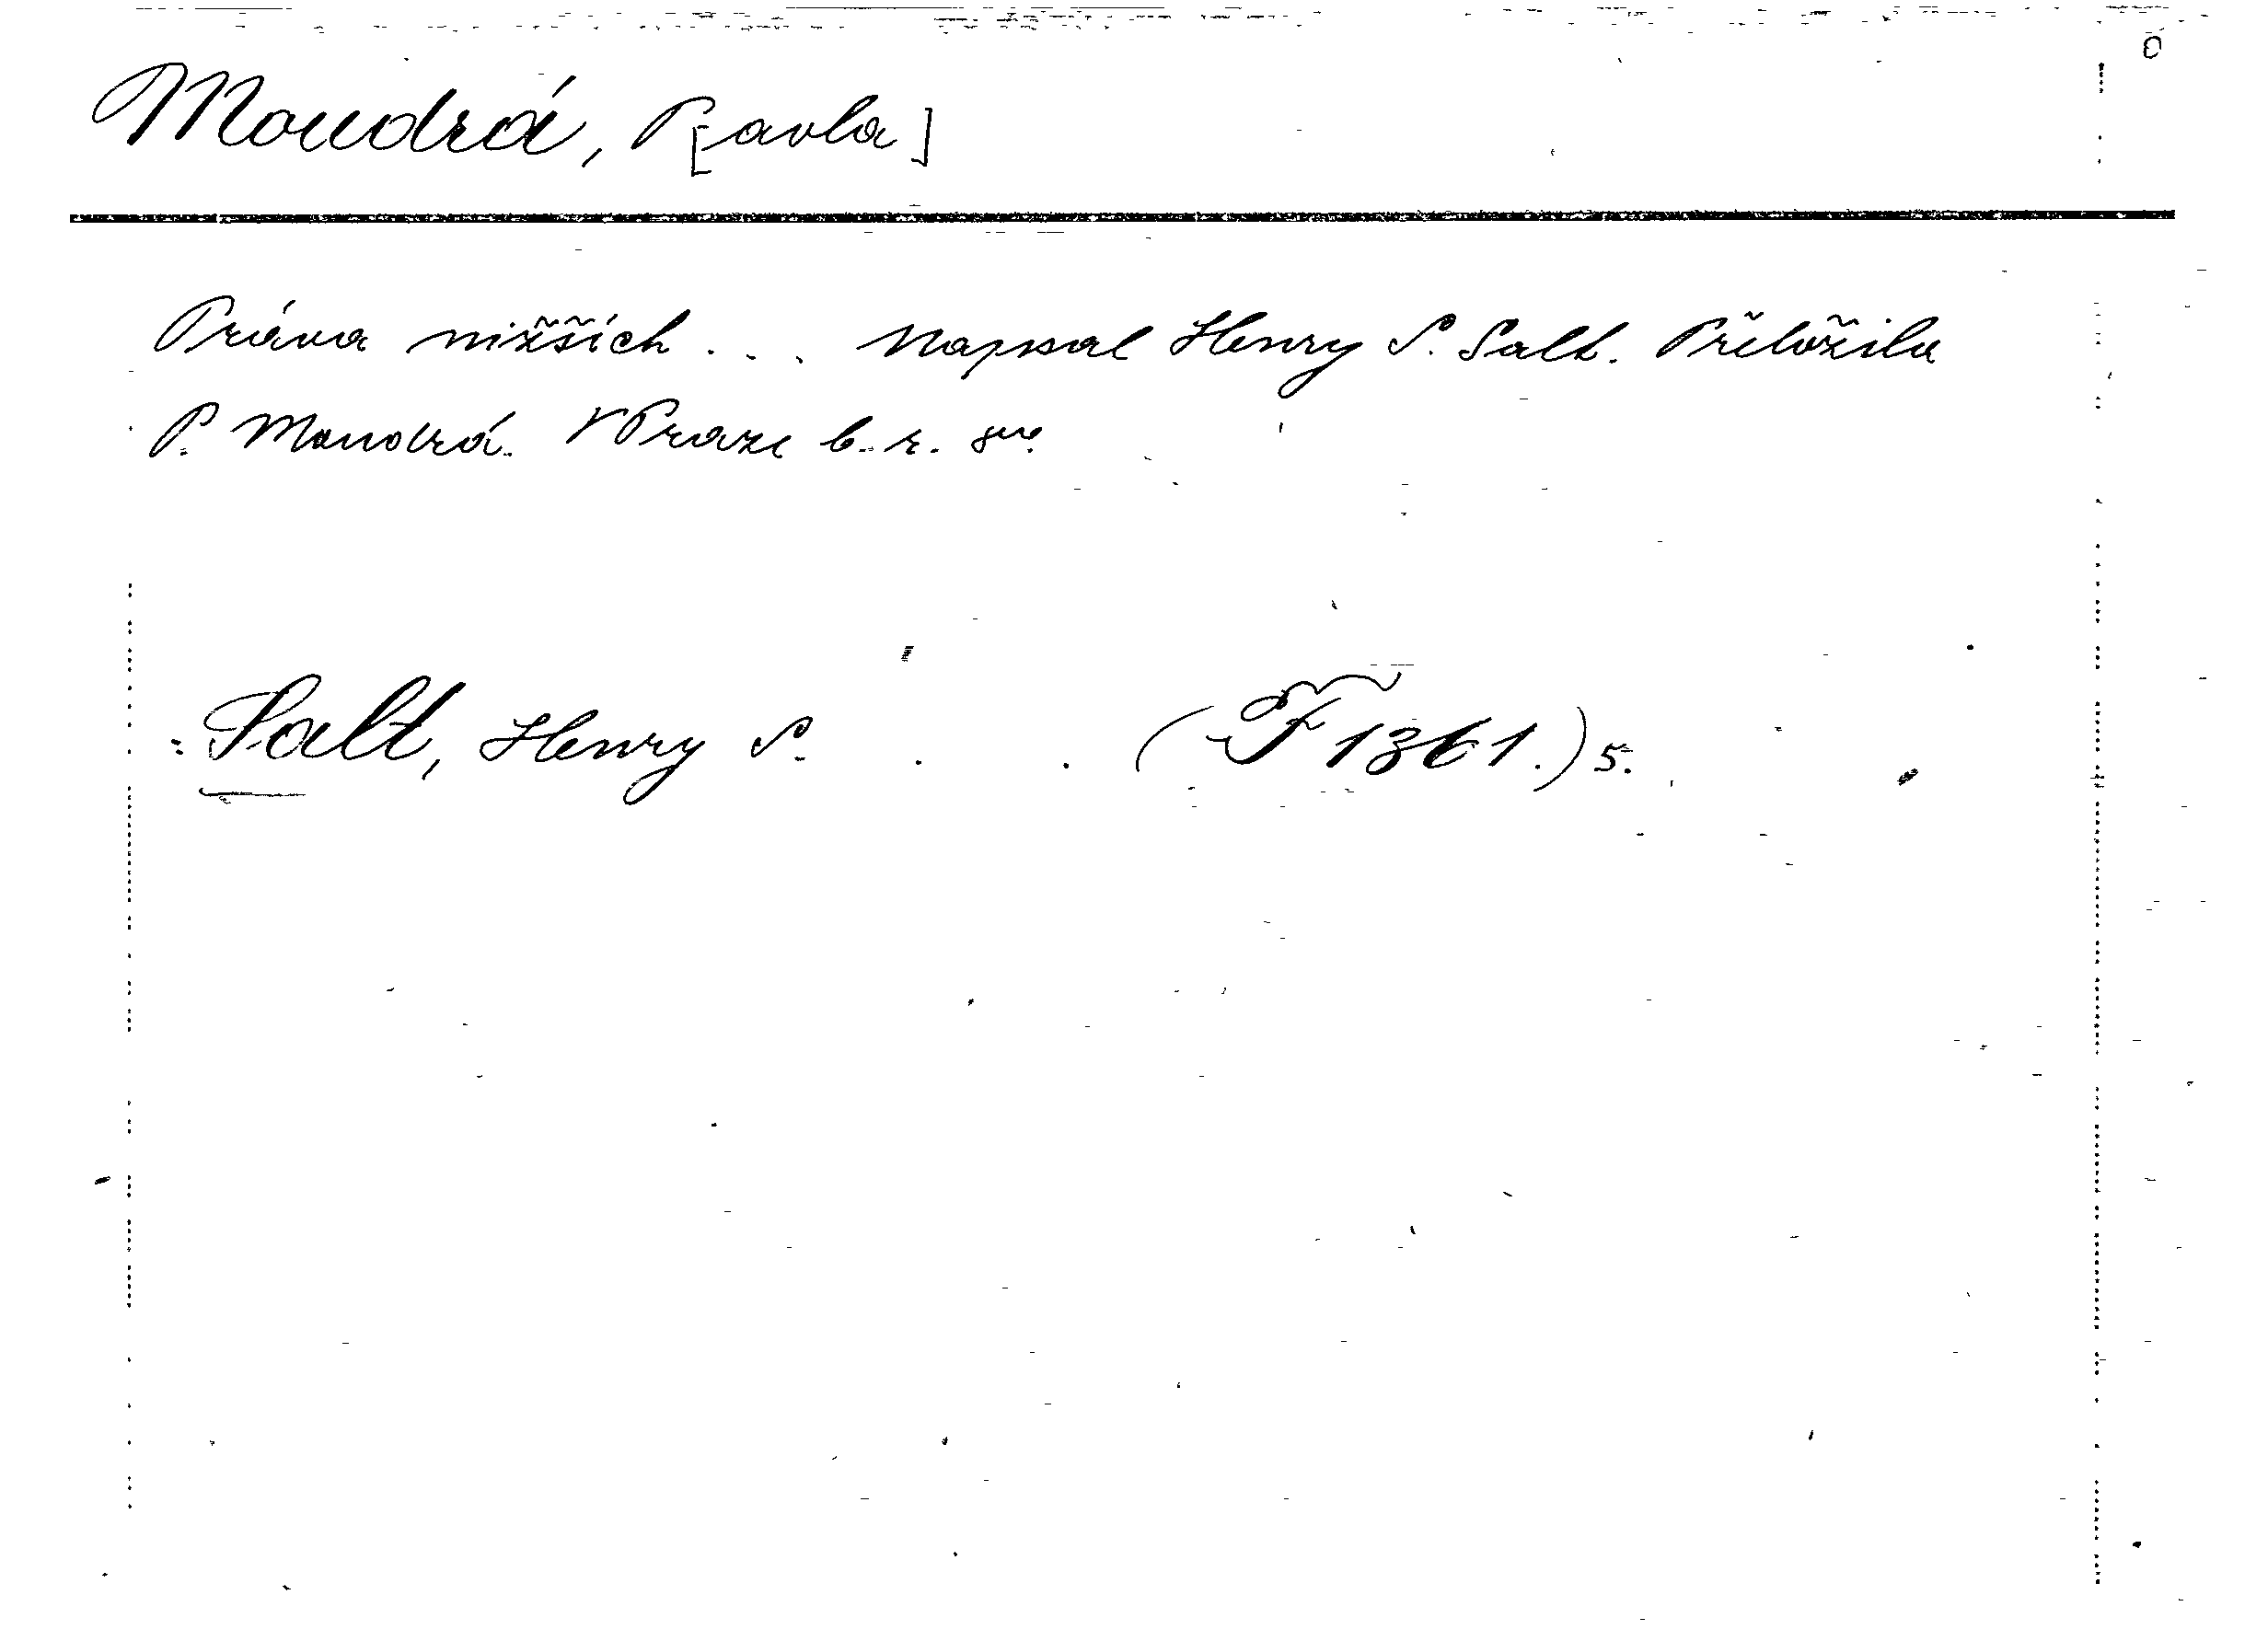 O
Moudrá, P[avla]
Práva nižších . . . Napsal Henry S. Salt. Přeložila
P. Moudrá. V Praze b. r. 8vo.
: Salt, Henry S. . . (F 1361.) 5.